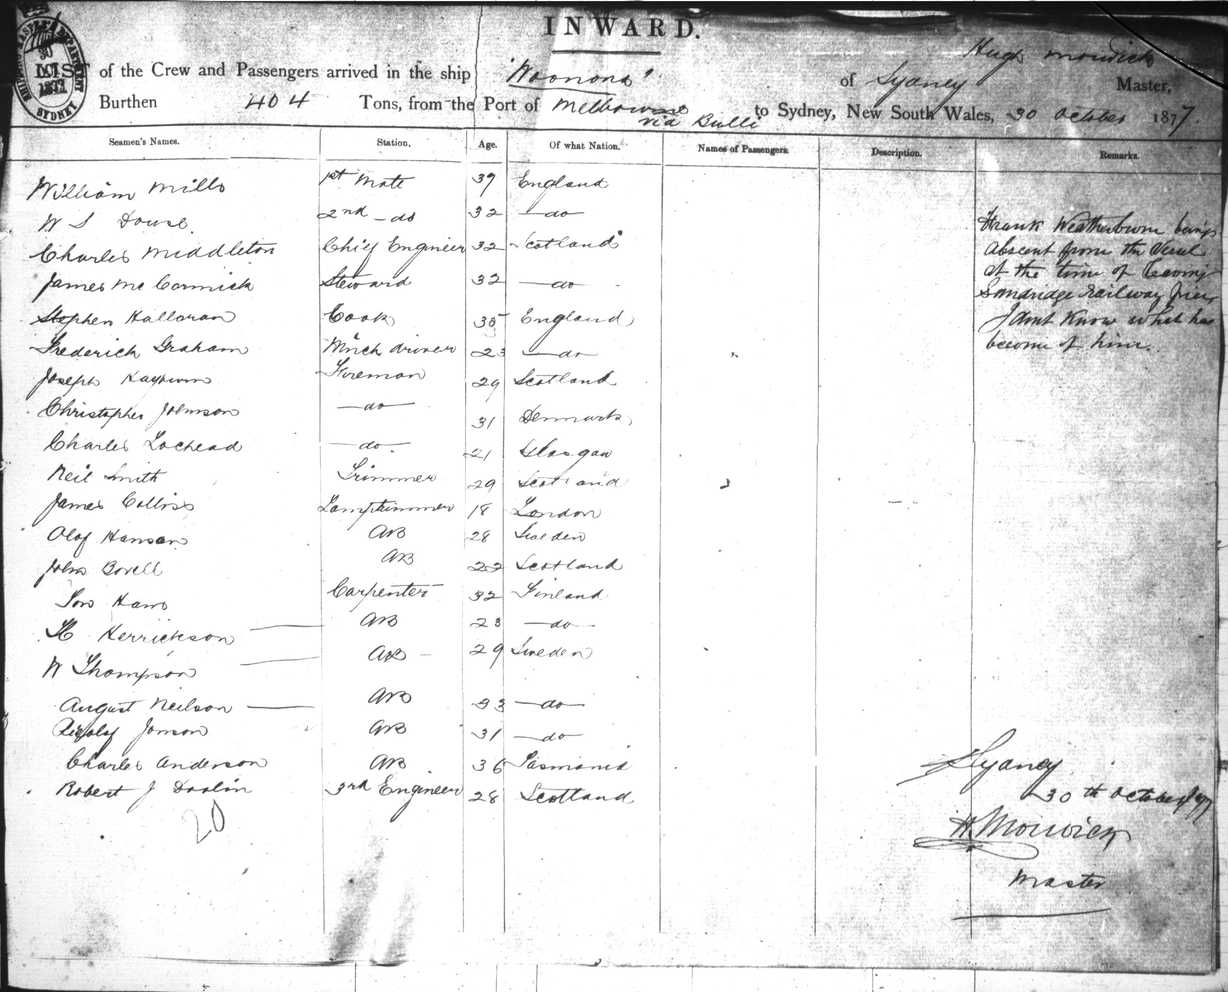 INWARD.
30
OCT
1877
SYDNEY
LIST of the Crew and Passengers arrived in the ship "Woonona" of Sydney Hugh Morwick Master,
Burthen 404 Tons, from the Port of Melbourne via Bulli to Sydney, New South Wales, 30 October 1877.
Seamen's Names. Station. Age. Of what Nation. Names of Passengers. Description. Remarks.
William Mills 1st Mate 37 England
W S Douse 2nd - do 32 - do
Charles Middleton Chief Engineer 32 Scotland
James McCormick Steward 32 - do
Stephen Halloran Cook 35 England
Frederick Graham Winch driver 23 - do
Joseph Fireman 29 Scotland
Christopher Johnson - do 31 Denmark
Charles Lochead - do - 21 Glasgow
Neil Smith Trimmer 29 Scotland
James Collins Lamptrimmer 18 London
Olof Hansen AB 28 Sweden
John Bovell AB 22 Scotland
Carpenter 32 Finland
K Herrickson AB 23 - do -
W Thompson AB 29 Sweden
August Neilson AB 33 - do -
Jonson AB 31 - do
Charles Anderson AB 36 Tasmania
Robert J 3rd Engineer 28 Scotland
20
Frank Weatherburn being
absent from the Vessel
at the time of leaving
Sandridge Railway pier
I dont know what has
become of him.
Sydney
30th October /77
H. Morwick
Master